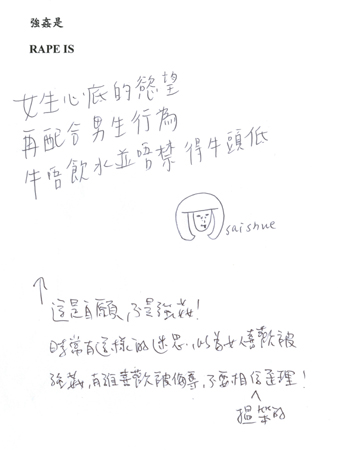 強姦是
RAPE IS
女生心底的慾望
再配合男生行為
牛唔飲水並唔禁得牛頭低
saishue
這是自願,不是強姦!
時常有這樣的迷思,以為女人喜歡被
強姦,有誰喜歡被侮辱,不要相信歪理!
揾笨的